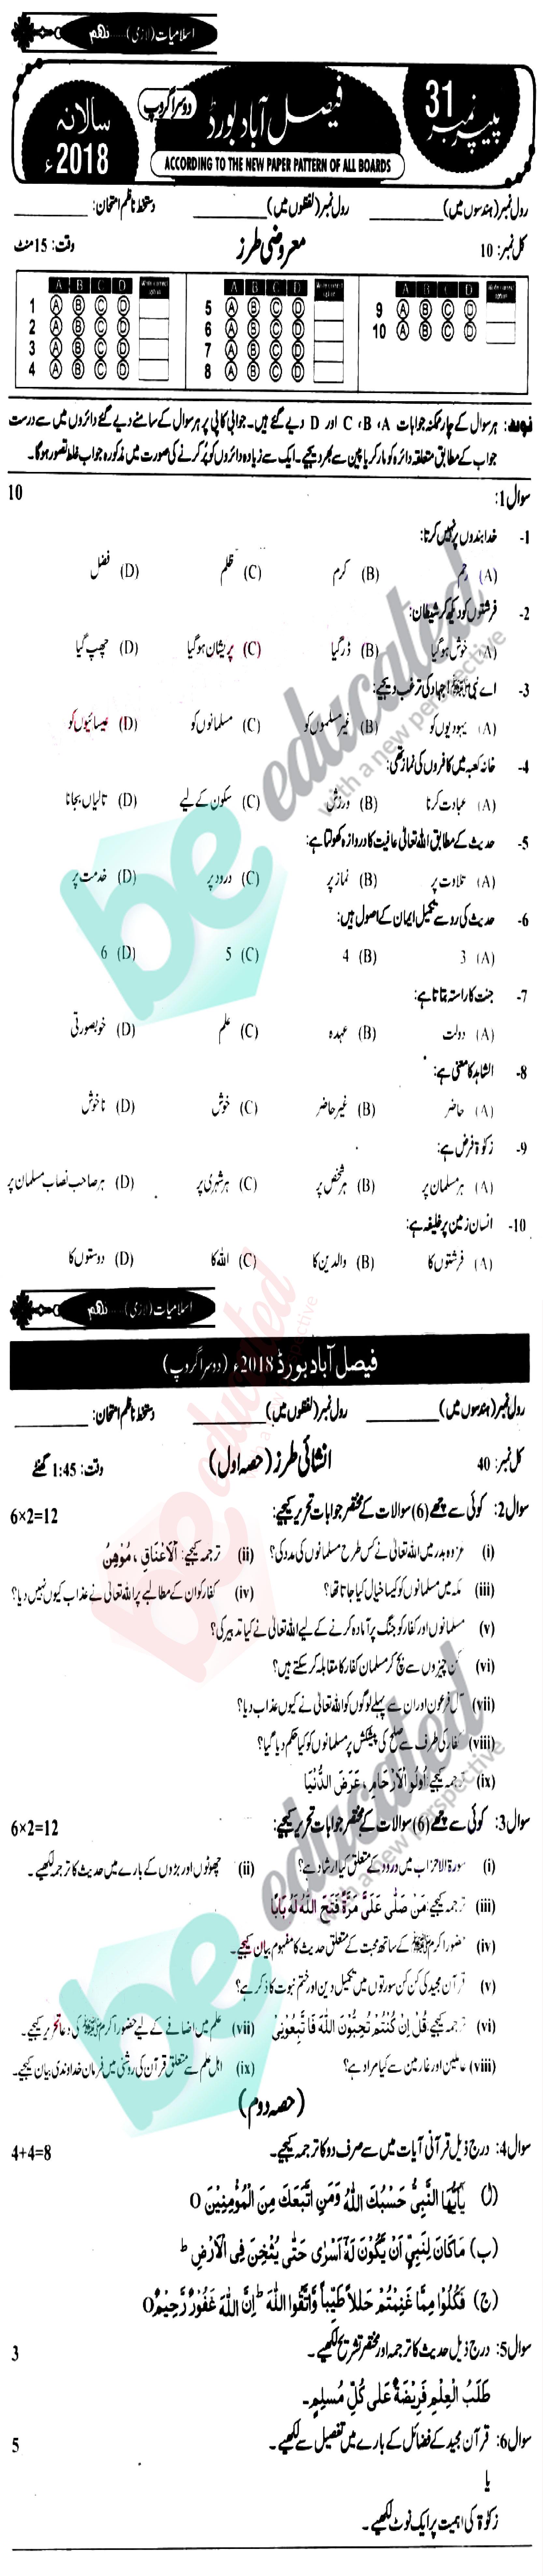 اسلامیات (لازمی)......نہم
پیپر نمبر 31
فیصل آباد بورڈ
دوسرا گروپ
سالانہ 2018ء
ACCORDING TO THE NEW PAPER PATTERN OF ALL BOARDS
رول نمبر (ہندسوں میں) ________ رول نمبر (لفظوں میں) ________ دستخط ناظم امتحان: ________
کل نمبر: 10 معروضی طرز وقت: 15 منٹ
A B C D Write correct option A B C D Write correct option A B C D Write correct option
1 A B C D 5 A B C D 9 A B C D
2 A B C D 6 A B C D 10 A B C D
3 A B C D 7 A B C D
4 A B C D 8 A B C D
نوٹ: ہر سوال کے چار ممکنہ جوابات A ، B ، C اور D دیے گئے ہیں۔ جوابی کاپی پر ہر سوال کے سامنے دیے گئے دائروں میں سے درست
جواب کے مطابق متعلقہ دائرہ کو مارکر یا پین سے بھر دیجیے۔ ایک سے زیادہ دائروں کو پُر کرنے کی صورت میں مذکورہ جواب غلط تصور ہوگا۔
سوال 1: 10
1- خدا بندوں پر نہیں کرتا:
(A) رحم (B) کرم (C) ظلم (D) فضل
2- فرشتوں کو دیکھ کر شیطان:
(A) خوش ہوگیا (B) ڈر گیا (C) پریشان ہوگیا (D) چھپ گیا
3- اے نبی ﷺ! جہاد کی ترغیب دیجیے:
(A) یہودیوں کو (B) غیر مسلموں کو (C) مسلمانوں کو (D) عیسائیوں کو
4- خانہ کعبہ میں کافروں کی نماز تھی:
(A) عبادت کرنا (B) ورزش (C) سکون کے لیے (D) تالیاں بجانا
5- حدیث کے مطابق اللہ تعالیٰ عافیت کا دروازہ کھولتا ہے:
(A) تلاوت پر (B) نماز پر (C) درود پر (D) خدمت پر
6- حدیث کی رو سے تکمیل ایمان کے اصول ہیں:
(A) 3 (B) 4 (C) 5 (D) 6
7- جنت کا راستہ بتاتا ہے:
(A) دولت (B) عہدہ (C) علم (D) خوبصورتی
8- الشاہد کا معنی ہے:
(A) حاضر (B) غیر حاضر (C) خوش (D) ناخوش
9- زکوٰۃ فرض ہے:
(A) ہر مسلمان پر (B) ہر شخص پر (C) ہر شہری پر (D) ہر صاحب نصاب مسلمان پر
10- انسان زمین پر خلیفہ ہے:
(A) فرشتوں کا (B) والدین کا (C) اللہ کا (D) دوستوں کا
اسلامیات (لازمی)......نہم
فیصل آباد بورڈ 2018ء (دوسرا گروپ)
رول نمبر (ہندسوں میں) ________ رول نمبر (لفظوں میں) ________ دستخط ناظم امتحان: ________
کل نمبر: 40 انشائی طرز (حصہ اول) وقت: 1:45 گھنٹے
سوال 2: کوئی سے چھے (6) سوالات کے مختصر جوابات تحریر کیجیے: 6×2=12
(i) غزوہ بدر میں اللہ تعالیٰ نے کس طرح مسلمانوں کی مدد کی؟ (ii) ترجمہ کیجیے: اَلْاَعْنَاقِ ، مُوْهِنُ
(iii) مکہ میں مسلمانوں کو کیسا خیال کیا جاتا تھا؟ (iv) کفار کو ان کے مطالبے پر اللہ تعالیٰ نے عذاب کیوں نہیں دیا؟
(v) مسلمانوں اور کفار کو جنگ پر آمادہ کرنے کے لیے اللہ تعالیٰ نے کیا تدبیر کی؟
(vi) کن چیزوں سے بچ کر مسلمان کفار کا مقابلہ کر سکتے ہیں؟
(vii) آل فرعون اور ان سے پہلے لوگوں کو اللہ تعالیٰ نے کیوں عذاب دیا؟
(viii) کفار کی طرف سے صلح کی پیشکش پر مسلمانوں کو کیا حکم دیا گیا؟
(ix) ترجمہ کیجیے: اُولُو الْاَرْحَامِ ، عَرَضَ الدُّنْیَا
سوال 3: کوئی سے چھے (6) سوالات کے مختصر جوابات تحریر کیجیے: 6×2=12
(i) سورۃ الاحزاب میں درود کے متعلق کیا ارشاد ہے؟ (ii) چھوٹوں اور بڑوں کے بارے میں حدیث کا ترجمہ لکھیے۔
(iii) ترجمہ کیجیے: مَنْ صَلّٰی عَلَیَّ مَرَّۃً فَتَحَ اللّٰهُ لَهٗ بَابًا
(iv) حضور اکرم ﷺ کے ساتھ محبت کے متعلق حدیث کا مفہوم بیان کیجیے۔
(v) قرآن مجید کی کن کن سورتوں میں تکمیل دین اور ختم نبوت کا ذکر ہے؟
(vi) ترجمہ کیجیے: قُلْ اِنْ كُنْتُمْ تُحِبُّوْنَ اللّٰهَ فَاتَّبِعُوْنِیْ (vii) علم میں اضافے کے لیے حضور اکرم ﷺ کی دعا تحریر کیجیے۔
(viii) عاملین اور غارمین سے کیا مراد ہے؟ (ix) اہل علم سے متعلق قرآن کی روشنی میں فرمان خداوندی بیان کیجیے۔
(حصہ دوم)
سوال 4: درج ذیل قرآنی آیات میں سے صرف دو کا ترجمہ کیجیے۔ 4+4=8
(ا) یٰۤاَیُّهَا النَّبِیُّ حَسْبُكَ اللّٰهُ وَمَنِ اتَّبَعَكَ مِنَ الْمُؤْمِنِیْنَ O
(ب) مَا كَانَ لِنَبِیٍّ اَنْ یَّكُوْنَ لَهٗۤ اَسْرٰی حَتّٰی یُثْخِنَ فِی الْاَرْضِ ط
(ج) فَكُلُوْا مِمَّا غَنِمْتُمْ حَلٰلًا طَیِّبًا وَّاتَّقُوا اللّٰهَ ط اِنَّ اللّٰهَ غَفُوْرٌ رَّحِیْمٌ O
سوال 5: درج ذیل حدیث کا ترجمہ اور مختصر تشریح لکھیے۔ 3
طَلَبُ الْعِلْمِ فَرِیْضَةٌ عَلٰی كُلِّ مُسْلِمٍ۔
سوال 6: قرآن مجید کے فضائل کے بارے میں تفصیل سے لکھیے۔ 5
یا
زکوٰۃ کی اہمیت پر ایک نوٹ لکھیے۔
be educated
with a new perspective
be educated
with a new perspective
be educated
with a new perspective